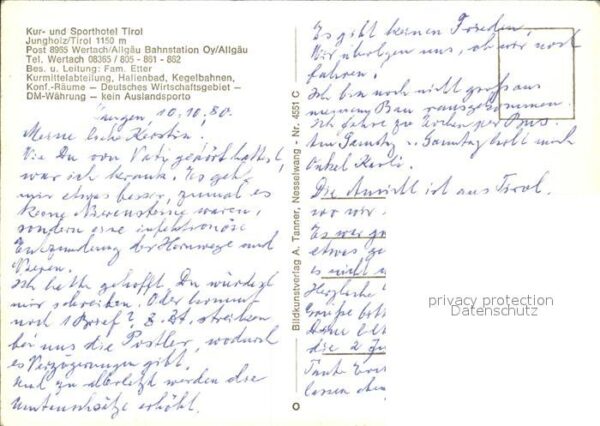 Kur- und Sporthotel Tirol
Jungholz/Tirol 1150 m
Post 8965 Wertach/Allgäu Bahnstation Oy/Allgäu
Tel. Wertach 08365 / 805 - 861 - 862
Bes. u. Leitung: Fam. Etter
Kurmittelabteilung, Hallenbad, Kegelbahnen,
Konf.-Räume — Deutsches Wirtschaftsgebiet —
DM-Währung — kein Auslandsporto
10.10.80.
Meine liebe Kerstin.
Wie Du von Vati gehört hattest,
war ich krank. Es geht
mir etwas besser, zumal es
keine Nierensteine waren,
sondern eine infektionöse
Entzündung der Harnwege und
Nieren.
Ich hatte gehofft, Du würdest
mir schreiben. Oder kommt
noch 1 Brief? Z. Zt. streiken
bei uns die Postler, wodurch
es Verzögerungen gibt.
Und zu allerletzt werden die
erhöht.
Bildkunstverlag A. Tanner, Nesselwang - Nr. 4551 C
Es gibt keinen Frieden.
Wir überlegen uns, ob wir noch
fahren.
Ich bin noch nicht gross aus
meinem Bau rausgekommen.
Ich fahre zu per Bus.
Am Samstag holt mich
Onkel
Die Ansicht ist aus Tirol,
wo wir
Es war
etwas
es nicht
Herzliche
Deine
die 2
Tante
lassen
privacy protection
Datenschutz